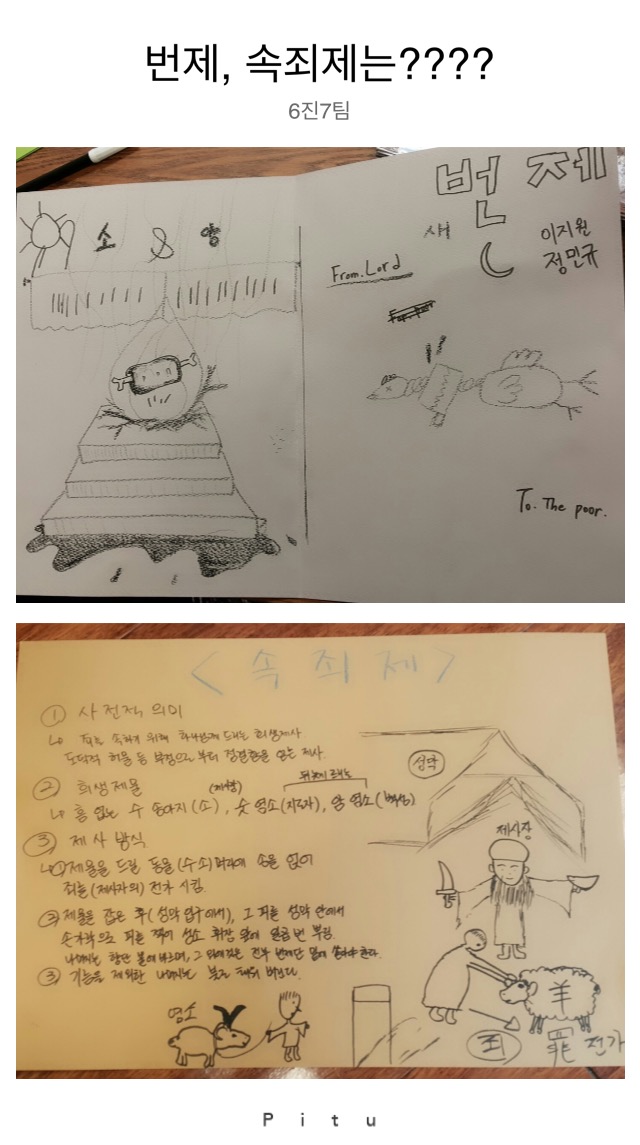 번제, 속죄제는????
6진7팀
소 & 양
번제
새
이지원
정민규
From. Lord
To. The poor.
<속죄제>
① 사전적 의미
↳ 죄를 속하기 위해 하나님께 드리는 희생제사
도덕적 허물 등 부정으로부터 정결함을 얻는 제사.
② 희생제물
↳ 흠 없는 수 송아지(소), 숫 염소(지도자), 암 염소(백성)
③ 제사 방식
↳① 제물을 드릴 동물(수소)머리에 손을 얹어
죄를(제사자의) 전가 시킴.
② 제물을 잡은 후(성막 입구에서), 그 피를 성막 안에서
손가락으로 피를 찍어 성소 휘장 앞에 일곱 번 뿌림.
나머지는 향단 뿔에 바르며, 그 외에 것은 전부 번제단 밑에 쏟아야 한다.
③ 기름을 제외한 나머지는 불로 태워 버린다.
성막
제사장
염소
羊
죄
罪 전가
P i t u